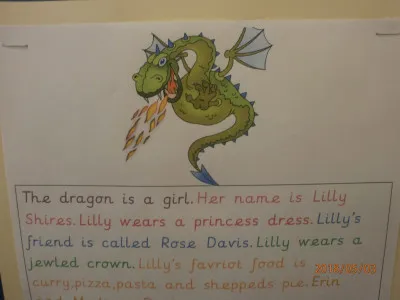 The dragon is a girl. Her name is Lilly
Shires. Lilly wears a princess dress. Lilly's
friend is called Rose Davis. Lilly wears a
jewled crown. Lilly's favriot food is
curry, pizza, pasta and sheppeds pie. Erin